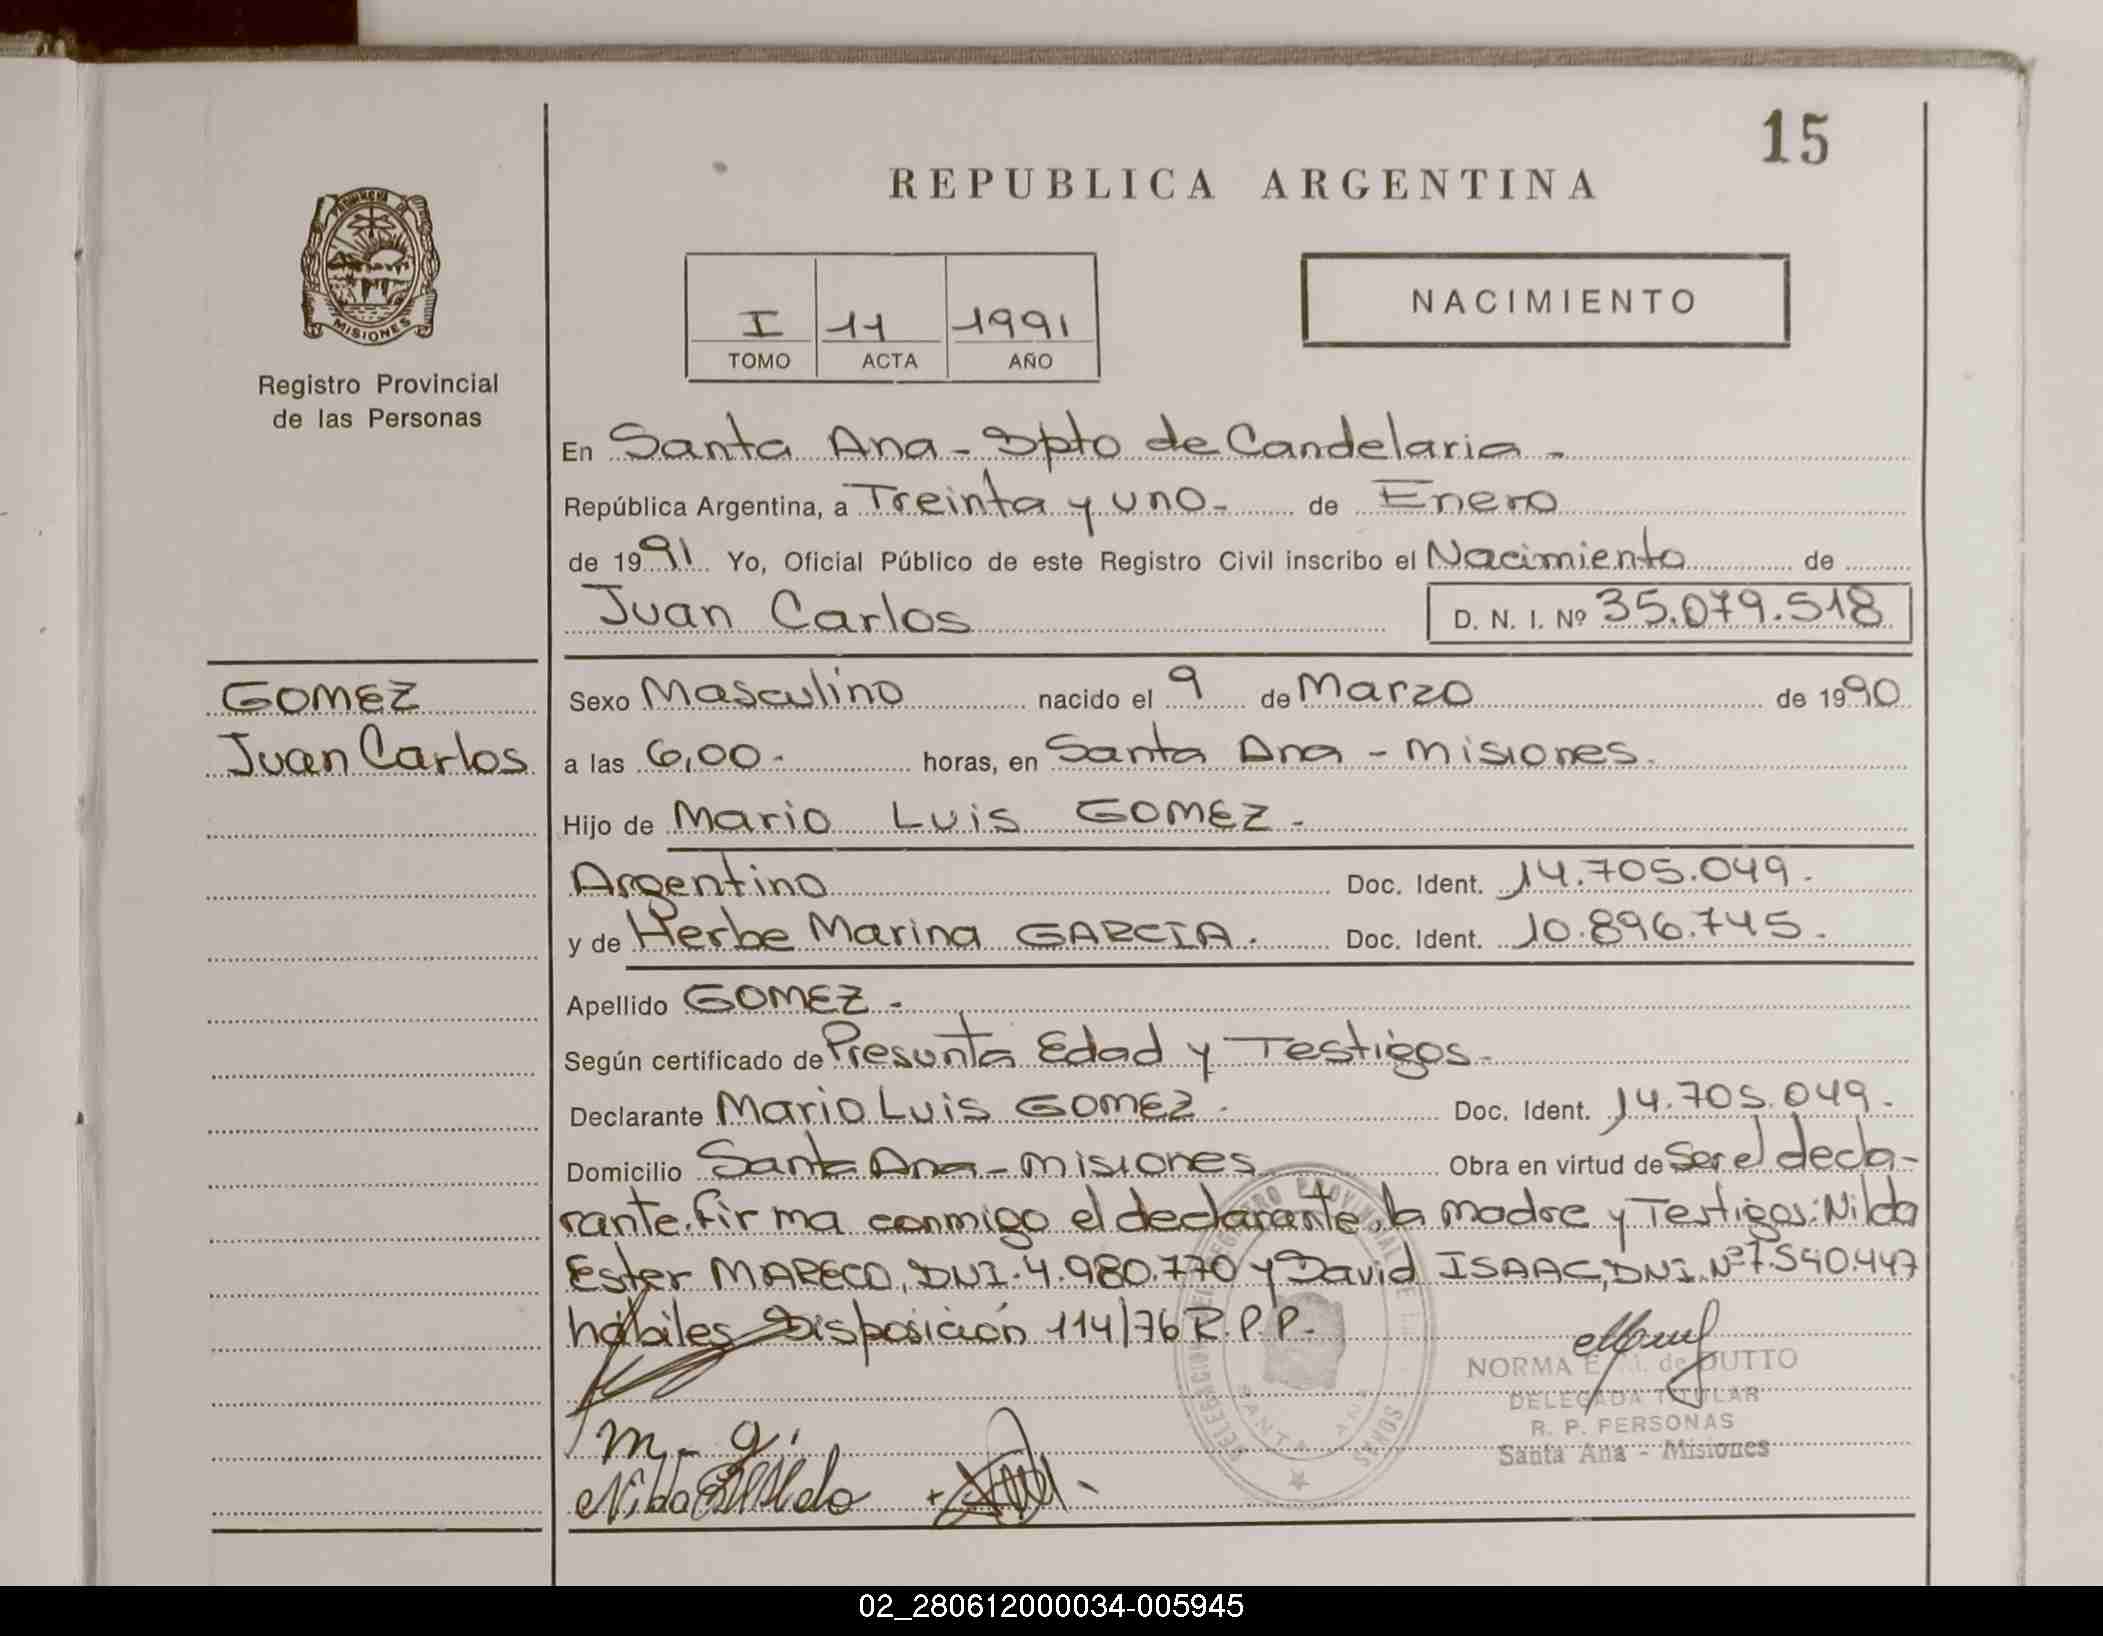 15
REPUBLICA ARGENTINA
PROVINCIA DE
MISIONES
Registro Provincial
de las Personas
I 11 1991
TOMO ACTA AÑO
NACIMIENTO
En Santa Ana - Dpto de Candelaria -
República Argentina, a Treinta y uno - de Enero
de 1991 Yo, Oficial Público de este Registro Civil inscribo el Nacimiento de
Juan Carlos D. N. I. Nº 35.079.518
GOMEZ
Juan Carlos
Sexo Masculino nacido el 9 de Marzo de 1990
a las 6,00 - horas, en Santa Ana - Misiones.
Hijo de Mario Luis GOMEZ -
Argentino Doc. Ident. 14.705.049.
y de Herbe Marina GARCIA. Doc. Ident. 10.896.745.
Apellido GOMEZ -
Según certificado de Presunta Edad y Testigos -
Declarante Mario Luis GOMEZ - Doc. Ident. 14.705.049.
Domicilio Santa Ana - Misiones Obra en virtud de Ser el decla-
rante. Firma conmigo el declarante, la madre y Testigos: Nilda
Ester MARECO, DNI. 4.980.770 y David ISAAC, DNI. Nº 7.540.447
hábiles Disposición 114/76 R.P.P.
NORMA E. de DUTTO
DELEGADA TITULAR
R. P. PERSONAS
Santa Ana - Misiones
SANTA ANA
m - g.
02_280612000034-005945